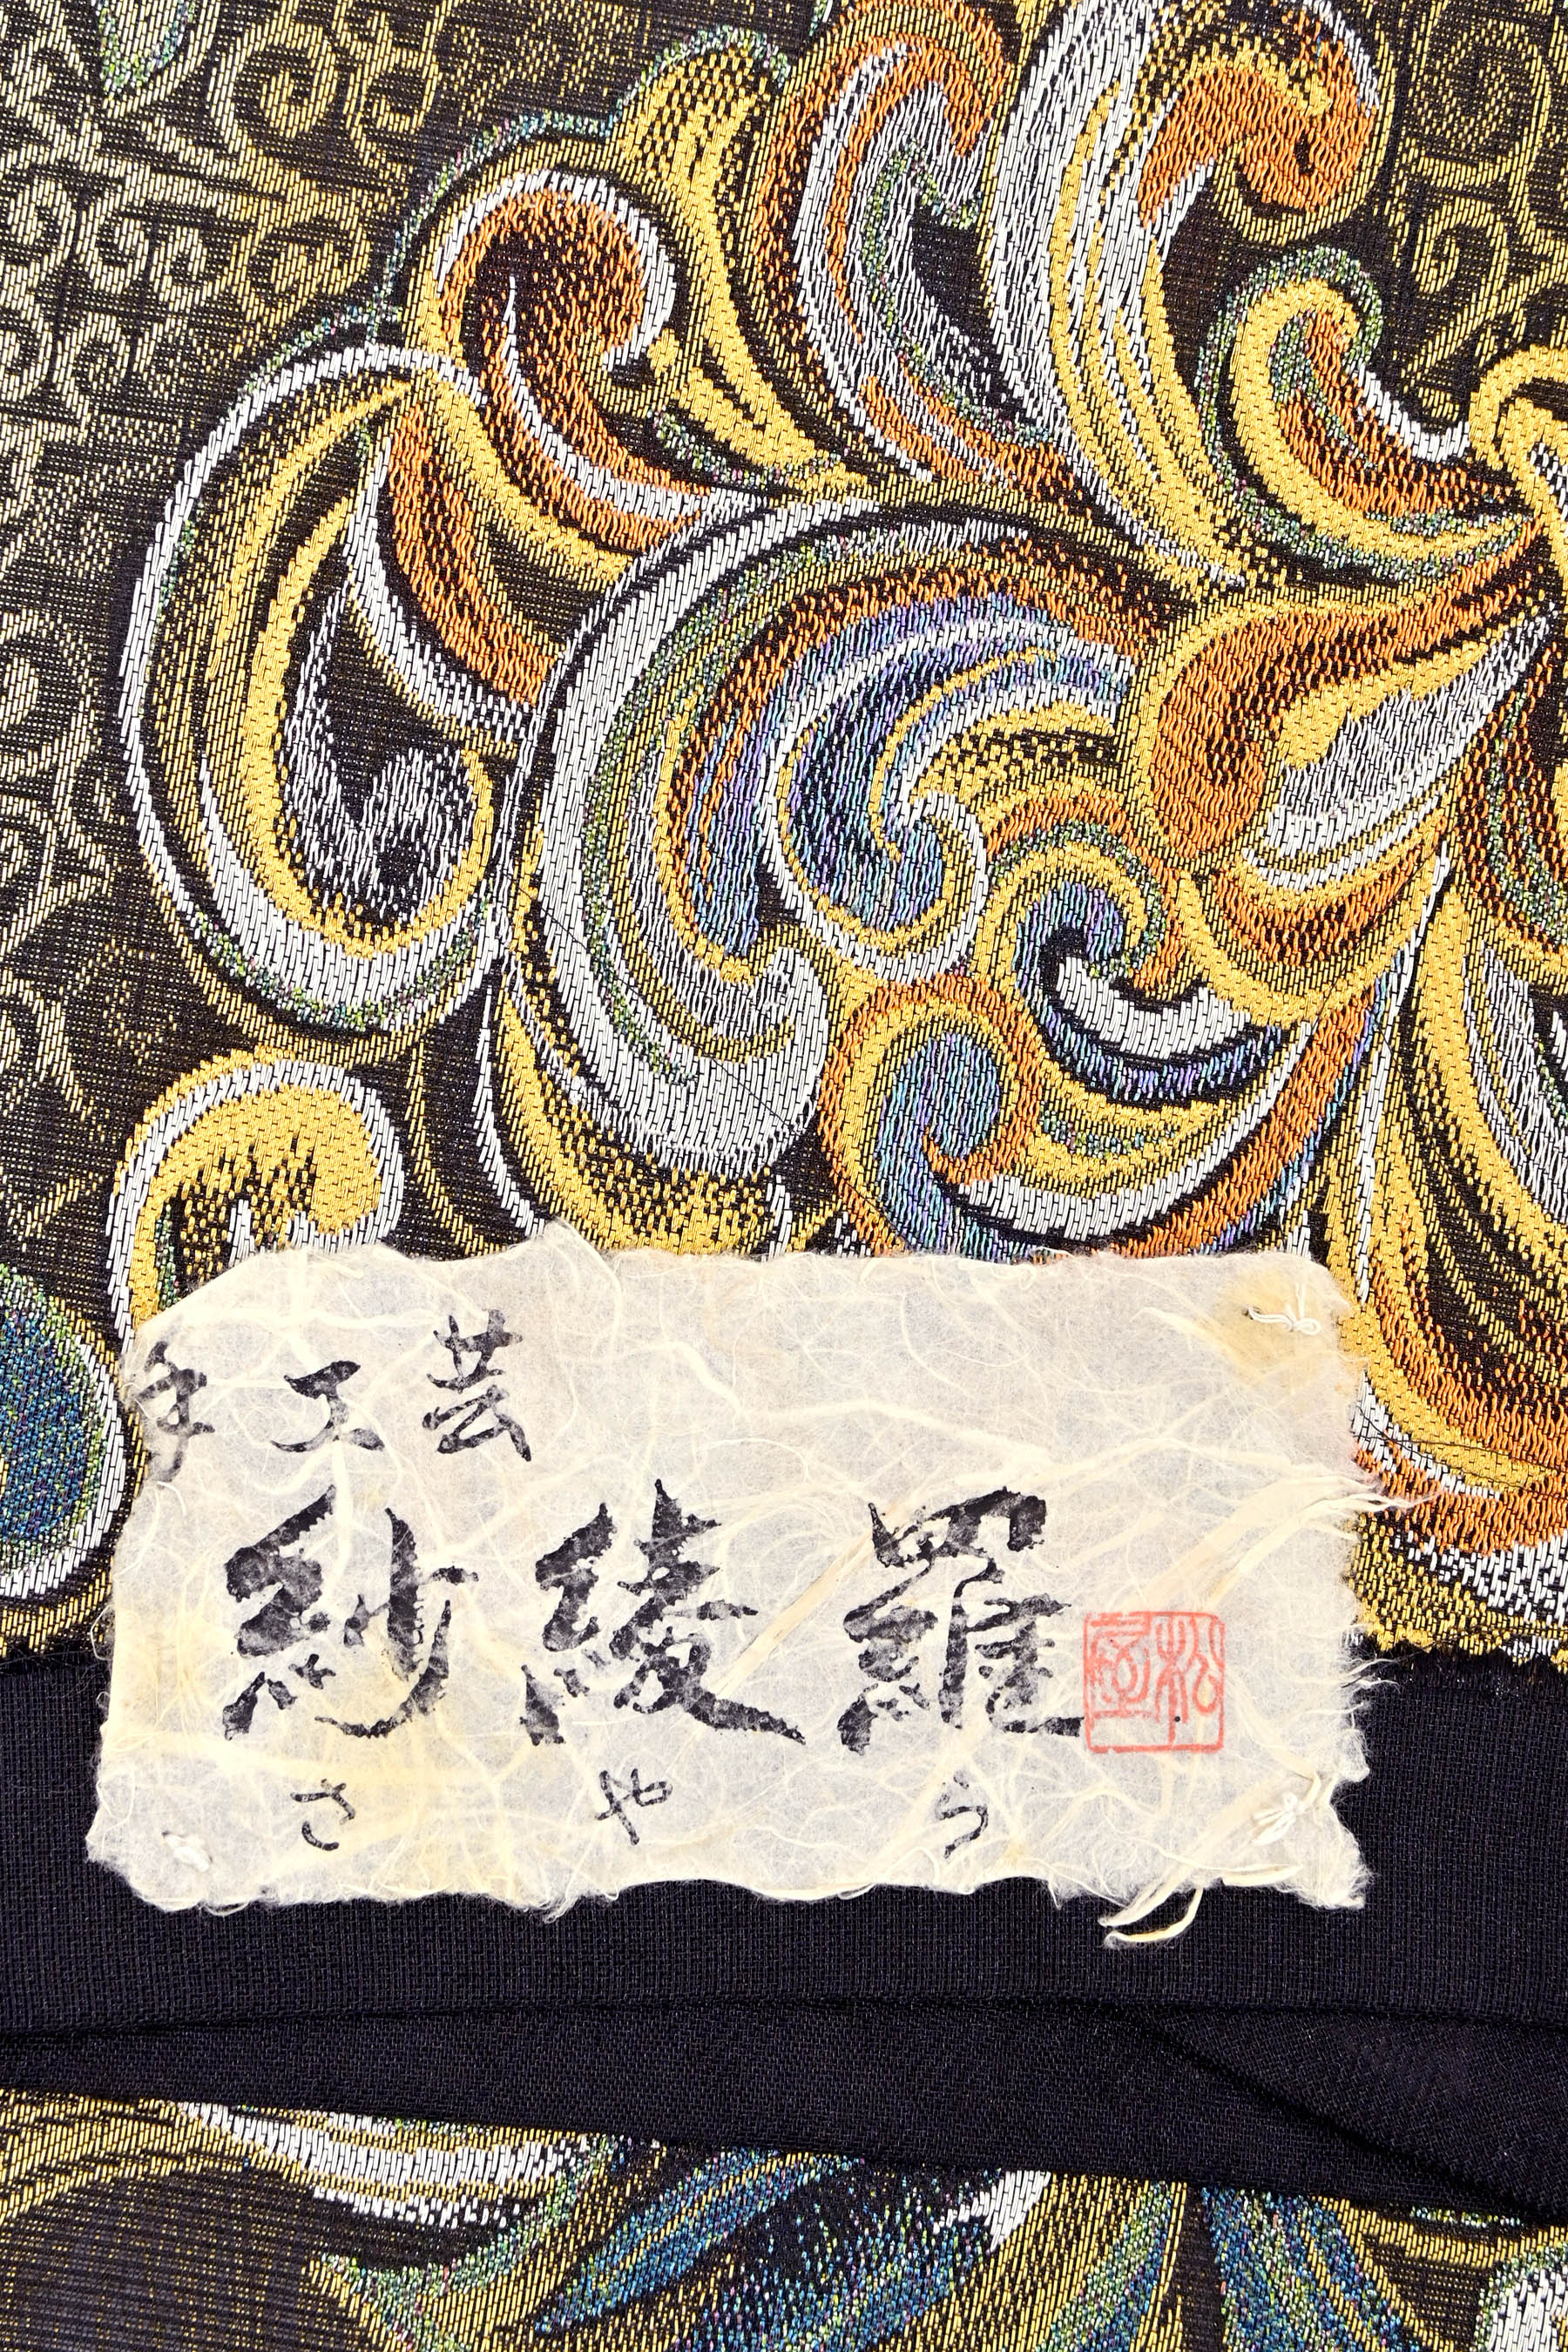 手工芸
紗綾羅
さやら